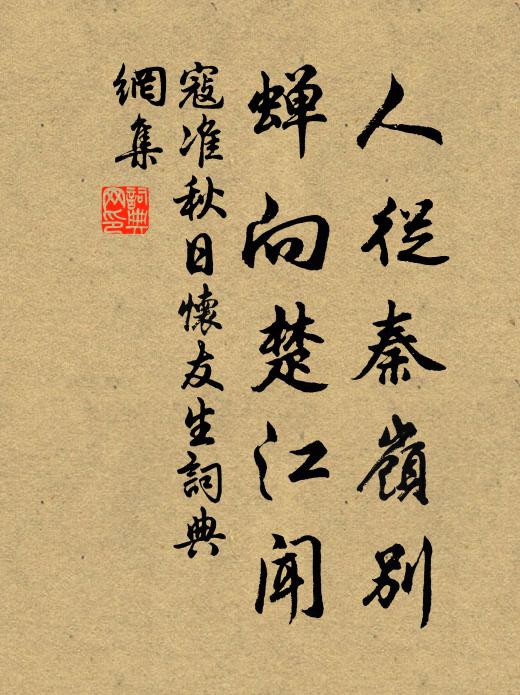 人從秦嶺别
蝉向楚江闻
寇准秋日懷友生詞典
網集
詞典网印